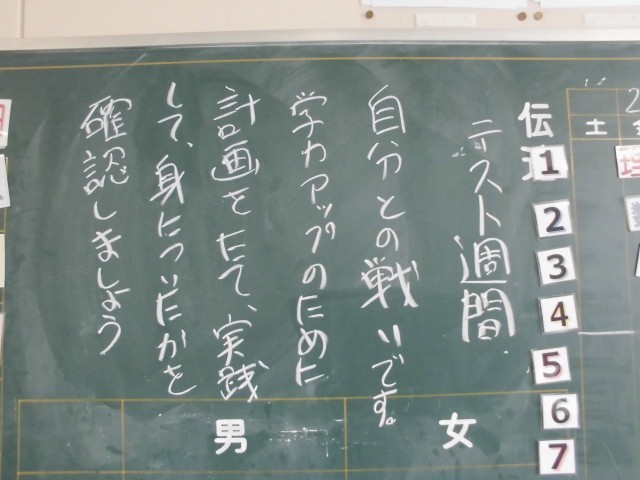 土
伝
1
2
3
4
5
6
7
テスト週間
自分との戦いです。
学力アップのために
計画をたて、実践
して、身についたかを
確認しましょう
女
男